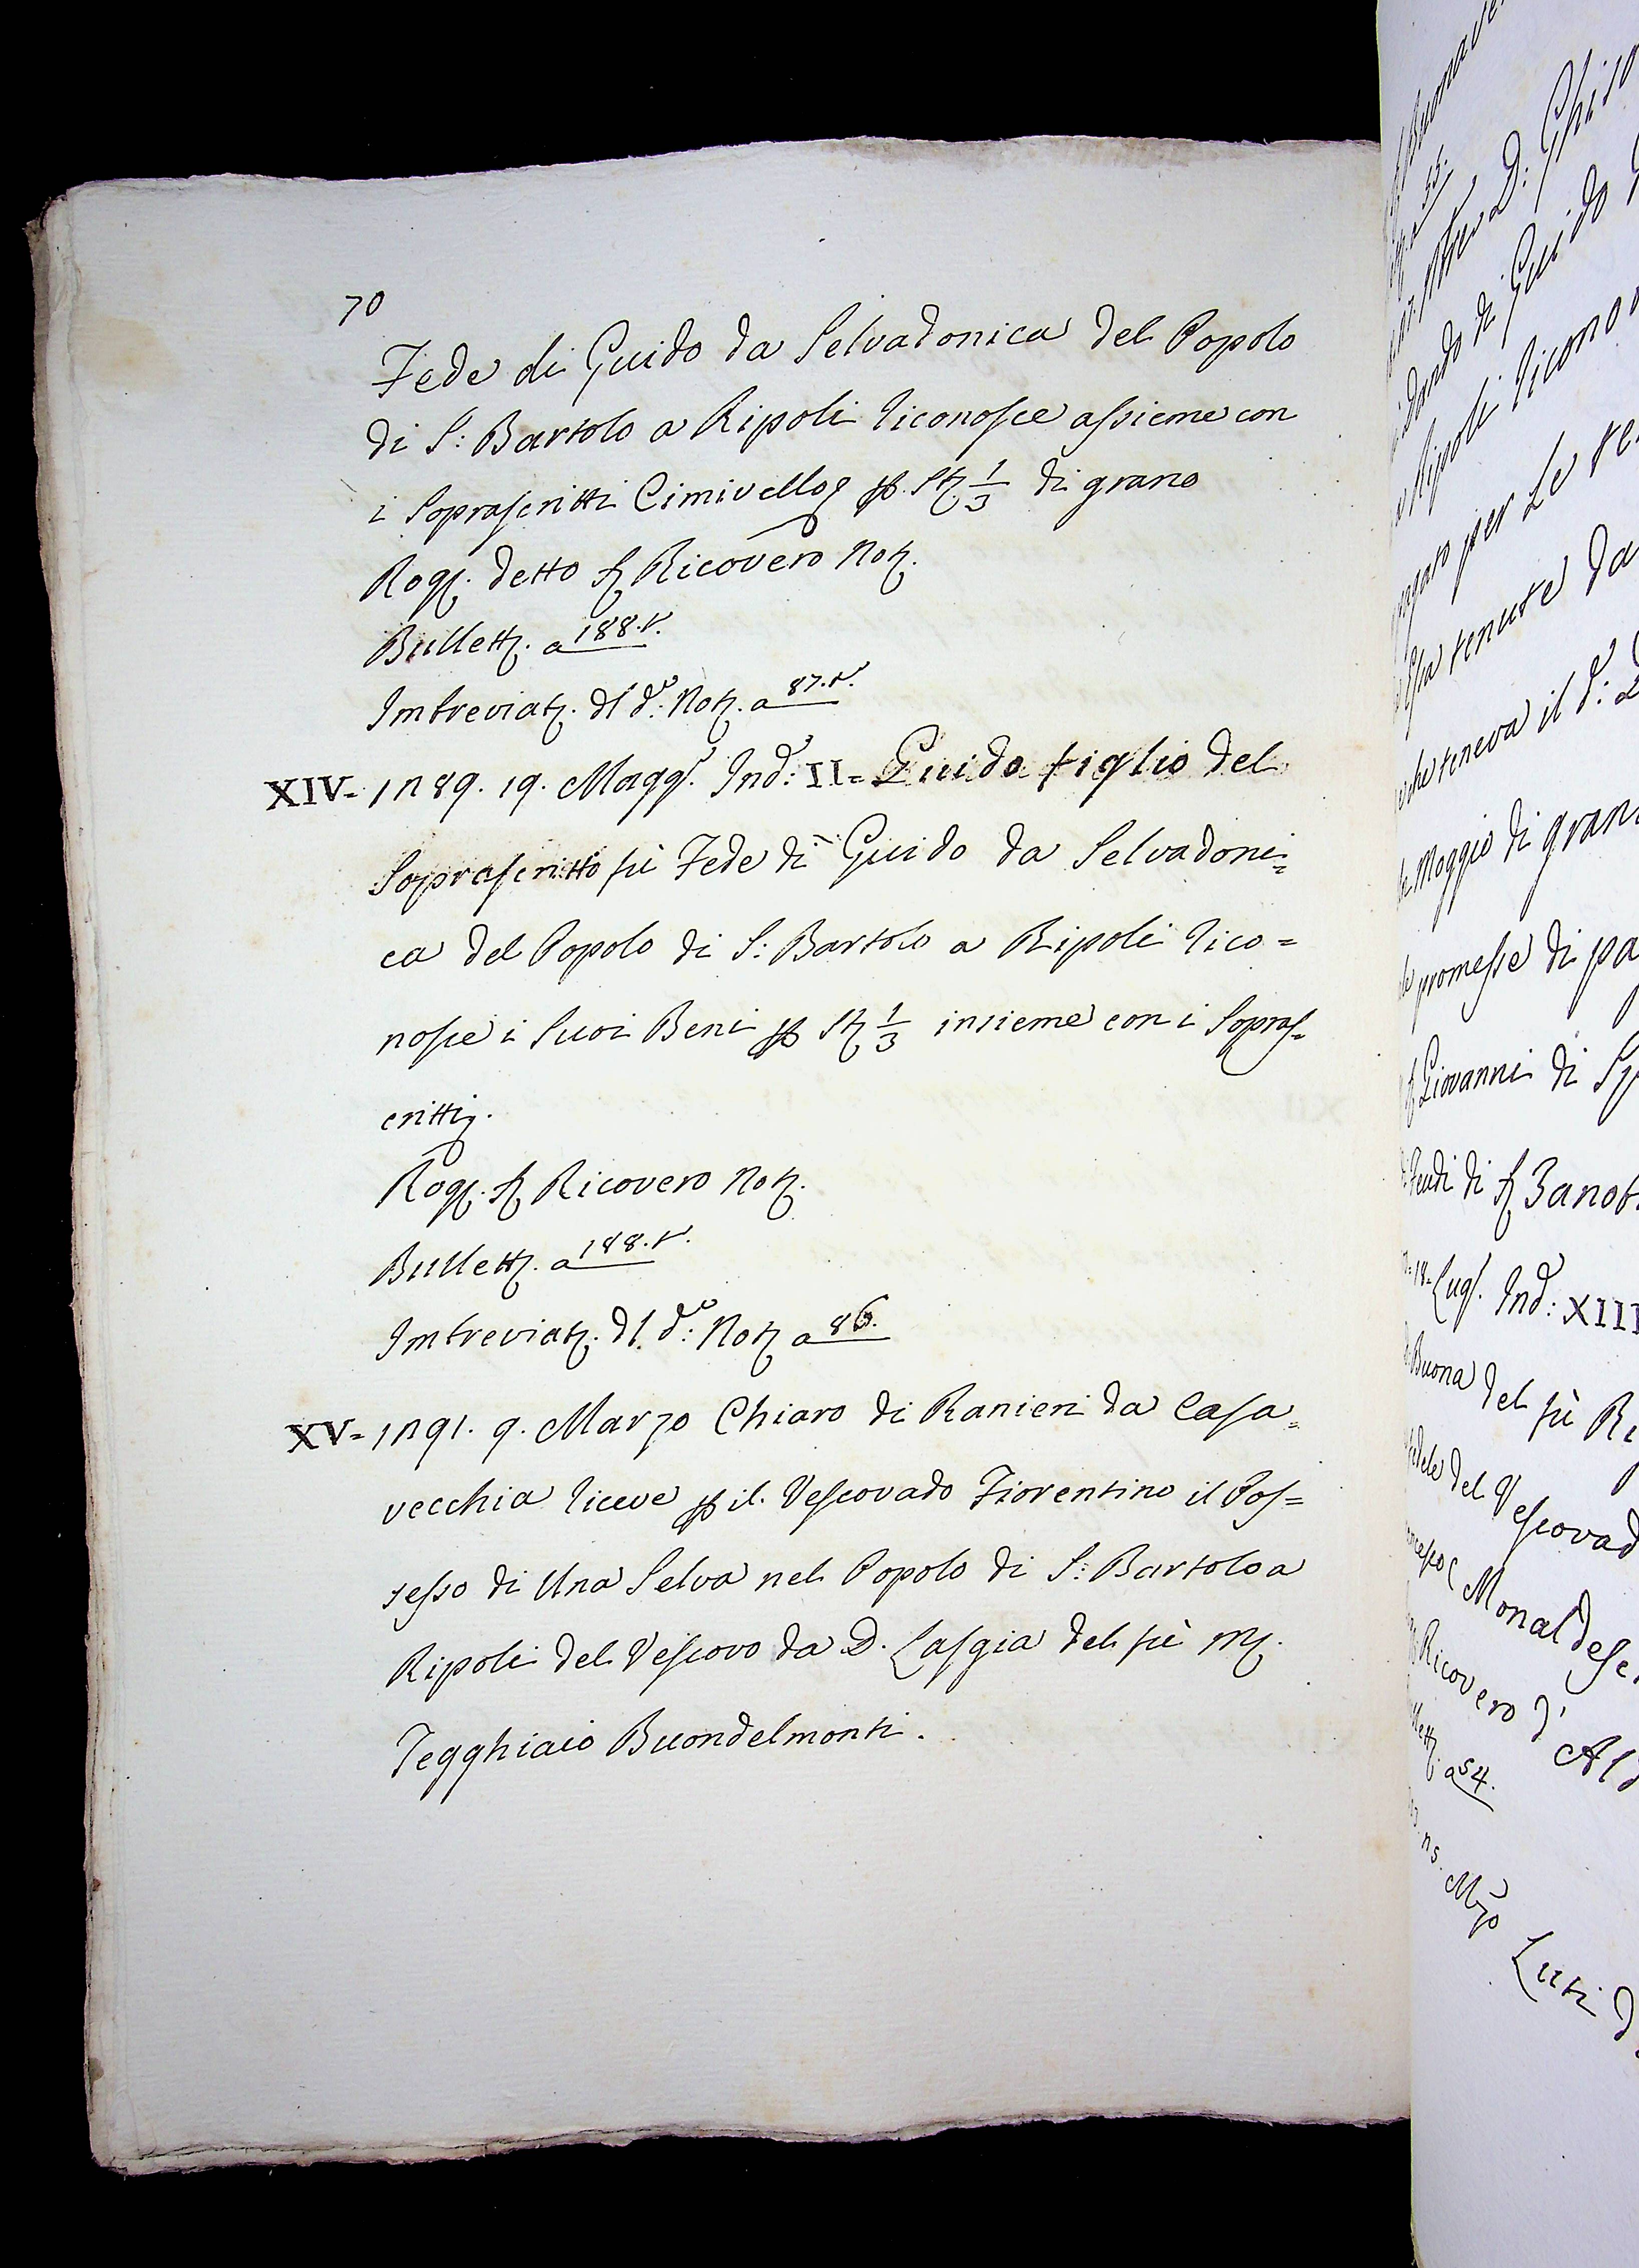 70
Fede di Guido da Selvadonica del Popolo
di S: Bartolo a Ripoli riconosce assieme con
i Soprascritti Cimivello p St 1/3 di grano
Rog. detto S. Ricovero Not.
Bullett. a 188.v.
Imbreviat. dl do: Not. a 87.v.
XIV= 1289. 19. Magg. Ind: II= Guido figlio del
Soprascritto fù Fede di Guido da Selvadoni=
ca del Popolo di S: Bartolo a Ripoli rico=
nosce i Suoi Beni p St 1/3 insieme con i Sopras=
critti.
Rog. S. Ricovero Not.
Bullett. a 188.v.
Imbreviat. dl. do: Not a 86.
XV= 1291. 9. Marzo Chiaro di Ranieri da Casa=
vecchia riceve p il. Vescovado Fiorentino il Pos=
sesso di Una Selva nel Popolo di S: Bartolo a
Ripoli del Vescovo da D. Lasgia del fù M.
Tegghiaio Buondelmonti.
D: Ghiso
di Guido
Ripoli ricono
per Le te
tenute da
che teneva il d:
Moggio di gran
promesse di pa
Giovanni di
di S. Zanob
18= Lug. Ind: XIII
Buona del fù Ri
del Vescovad
Monaldesc
Ricovero d' Ald
a 54.
Luti d